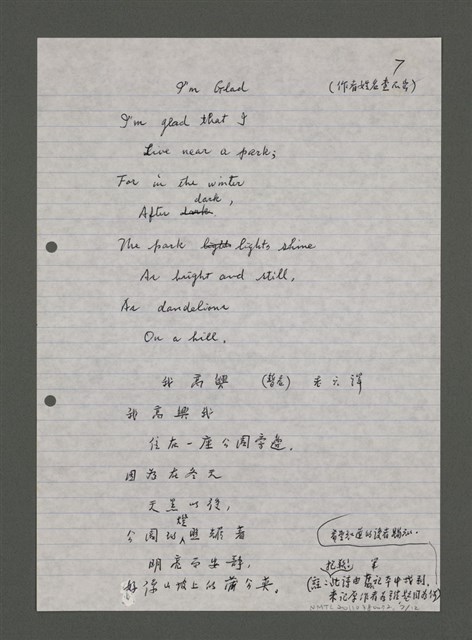 7
I'm Glad
(作者姓名查不出)
I'm glad that I
Live near a park;
For in the winter
dark,
After dark
The park lights lights shine
As bright and still,
As dandelions
On a hill.
我高興 (暫名) 老六譯
我高興我
住在一座公園旁邊,
因為在冬天
天黑以後,
公園的燈照耀著
明亮而安靜,
好像山坡上的蒲公英。
希望知道的讀者賜知.
(註:此詩由舊記本中找到,
未記原作者為誰